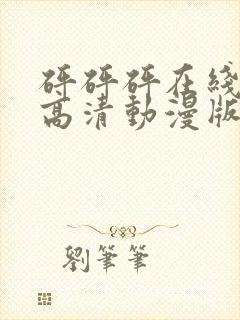 砰砰砰在綫
高清動漫版
劉筆筆